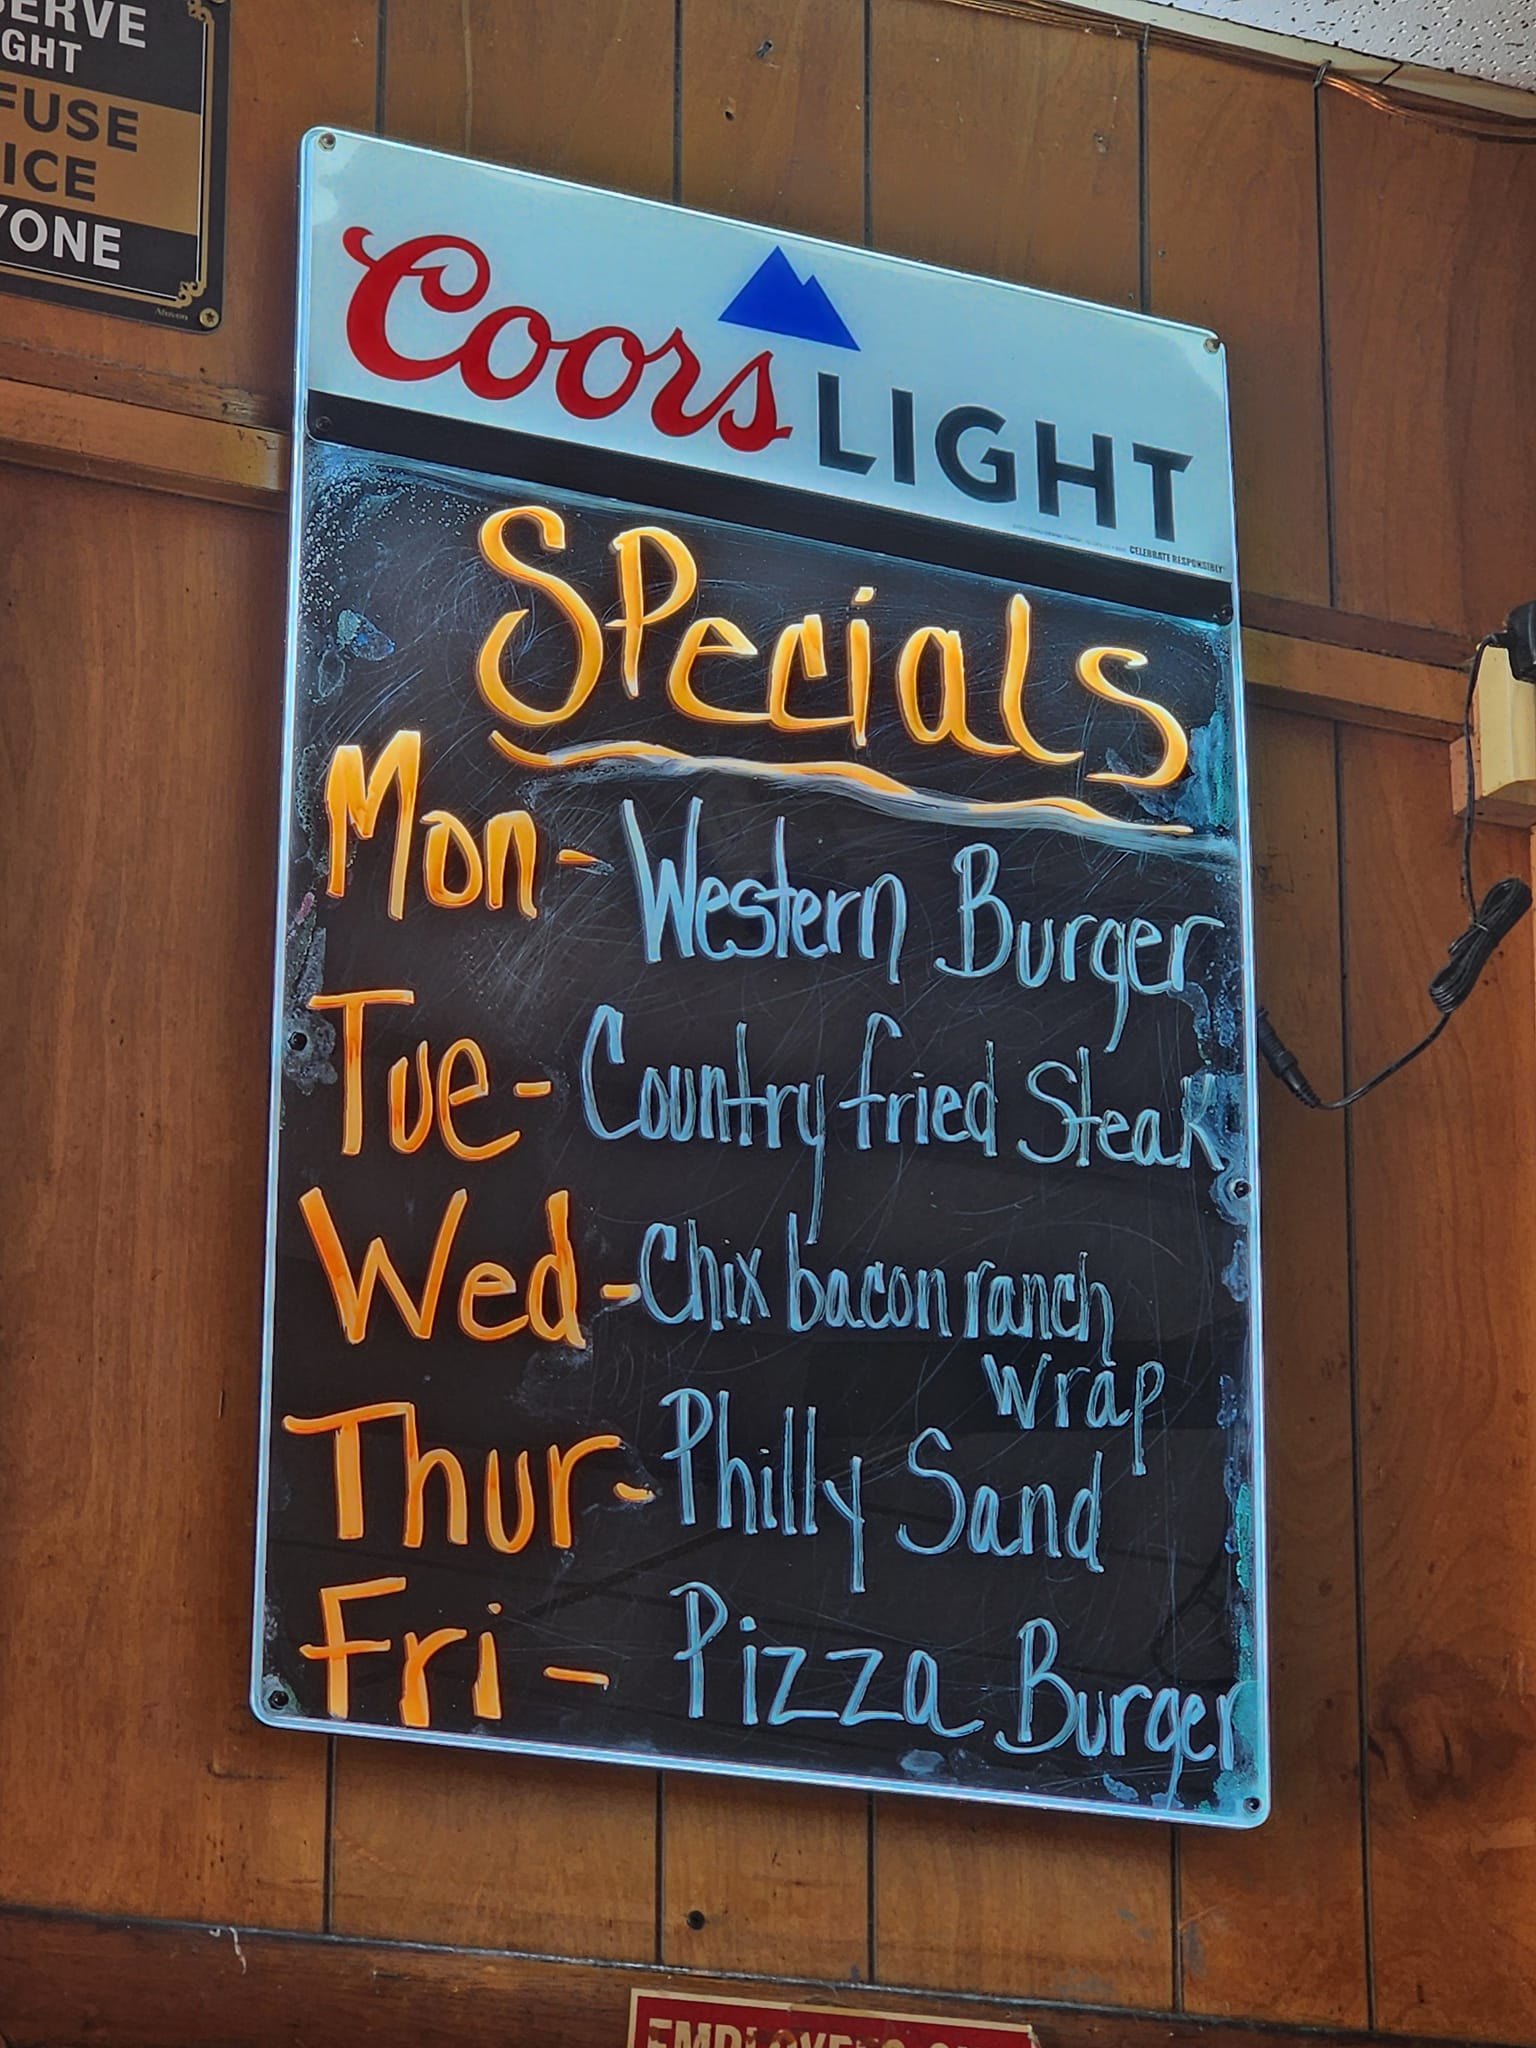 SERVE
GHT
FUSE
ICE
YONE
Coors LIGHT
CELEBRATE RESPONSIBLY
Specials
Mon- Western Burger
Tue- Country fried Steak
Wed- Chix bacon ranch
wrap
Thur- Philly Sand
Fri- Pizza Burger